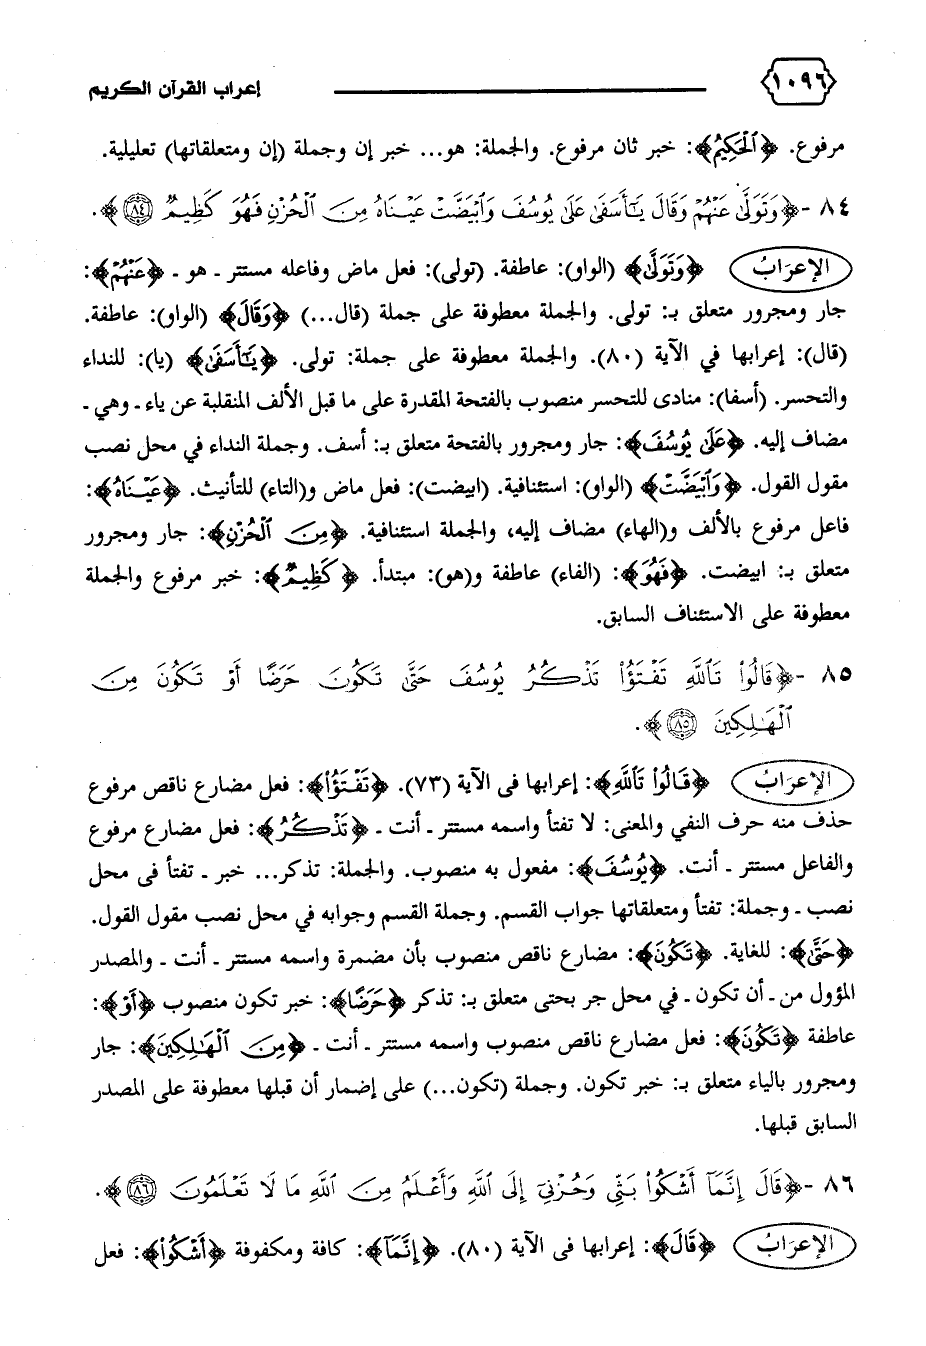 ١٠٩٦ إعراب القرآن الكريم
مرفوع. ﴿ٱلْحَكِيمُ﴾: خبر ثان مرفوع. والجملة: هو... خبر إن وجملة (إن ومتعلقاتها) تعليلية.
٨٤ -﴿وَتَوَلَّىٰ عَنْهُمْ وَقَالَ يَٰٓأَسَفَىٰ عَلَىٰ يُوسُفَ وَٱبْيَضَّتْ عَيْنَاهُ مِنَ ٱلْحُزْنِ فَهُوَ كَظِيمٌ ٨٤﴾.
الإعرَابُ ﴿وَتَوَلَّىٰ﴾ (الواو): عاطفة. (تولى): فعل ماض وفاعله مستتر ـ هو ـ ﴿عَنْهُمْ﴾:
جار ومجرور متعلق بـ: تولى. والجملة معطوفة على جملة (قال...) ﴿وَقَالَ﴾ (الواو): عاطفة.
(قال): إعرابها في الآية (٨٠). والجملة معطوفة على جملة: تولى. ﴿يَٰٓأَسَفَىٰ﴾ (يا): للنداء
والتحسر. (أسفا): منادى للتحسر منصوب بالفتحة المقدرة على ما قبل الألف المنقلبة عن ياء ـ وهي ـ
مضاف إليه. ﴿عَلَىٰ يُوسُفَ﴾: جار ومجرور بالفتحة متعلق بـ: أسف. وجملة النداء في محل نصب
مقول القول. ﴿وَٱبْيَضَّتْ﴾ (الواو): استئنافية. (ابيضت): فعل ماض و(التاء) للتأنيث. ﴿عَيْنَاهُ﴾:
فاعل مرفوع بالألف و(الهاء) مضاف إليه، والجملة استئنافية. ﴿مِنَ ٱلْحُزْنِ﴾: جار ومجرور
متعلق بـ: ابيضت. ﴿فَهُوَ﴾: (الفاء) عاطفة و(هو): مبتدأ. ﴿كَظِيمٌ﴾: خبر مرفوع والجملة
معطوفة على الاستئناف السابق.
٨٥ -﴿قَالُوا۟ تَٱللَّهِ تَفْتَؤُا۟ تَذْكُرُ يُوسُفَ حَتَّىٰ تَكُونَ حَرَضًا أَوْ تَكُونَ مِنَ
ٱلْهَٰلِكِينَ ٨٥﴾.
الإعرَابُ ﴿قَالُوا۟ تَٱللَّهِ﴾: إعرابها فى الآية (٧٣). ﴿تَفْتَؤُا۟﴾: فعل مضارع ناقص مرفوع
حذف منه حرف النفي والمعنى: لا تفتأ واسمه مستتر ـ أنت ـ ﴿تَذْكُرُ﴾: فعل مضارع مرفوع
والفاعل مستتر ـ أنت. ﴿يُوسُفَ﴾: مفعول به منصوب. والجملة: تذكر... خبر ـ تفتأ فى محل
نصب ـ وجملة: تفتأ ومتعلقاتها جواب القسم. وجملة القسم وجوابه في محل نصب مقول القول.
﴿حَتَّىٰ﴾: للغاية. ﴿تَكُونَ﴾: مضارع ناقص منصوب بأن مضمرة واسمه مستتر ـ أنت ـ والمصدر
المؤول من ـ أن تكون ـ في محل جر بحتى متعلق بـ: تذكر ﴿حَرَضًا﴾: خبر تكون منصوب ﴿أَوْ﴾:
عاطفة ﴿تَكُونَ﴾: فعل مضارع ناقص منصوب واسمه مستتر ـ أنت ـ ﴿مِنَ ٱلْهَٰلِكِينَ﴾: جار
ومجرور بالياء متعلق بـ: خبر تكون. وجملة (تكون...) على إضمار أن قبلها معطوفة على المصدر
السابق قبلها.
٨٦ -﴿قَالَ إِنَّمَآ أَشْكُوا۟ بَثِّى وَحُزْنِىٓ إِلَى ٱللَّهِ وَأَعْلَمُ مِنَ ٱللَّهِ مَا لَا تَعْلَمُونَ ٨٦﴾.
الإعرَابُ ﴿قَالَ﴾: إعرابها فى الآية (٨٠). ﴿إِنَّمَآ﴾: كافة ومكفوفة ﴿أَشْكُوا۟﴾: فعل